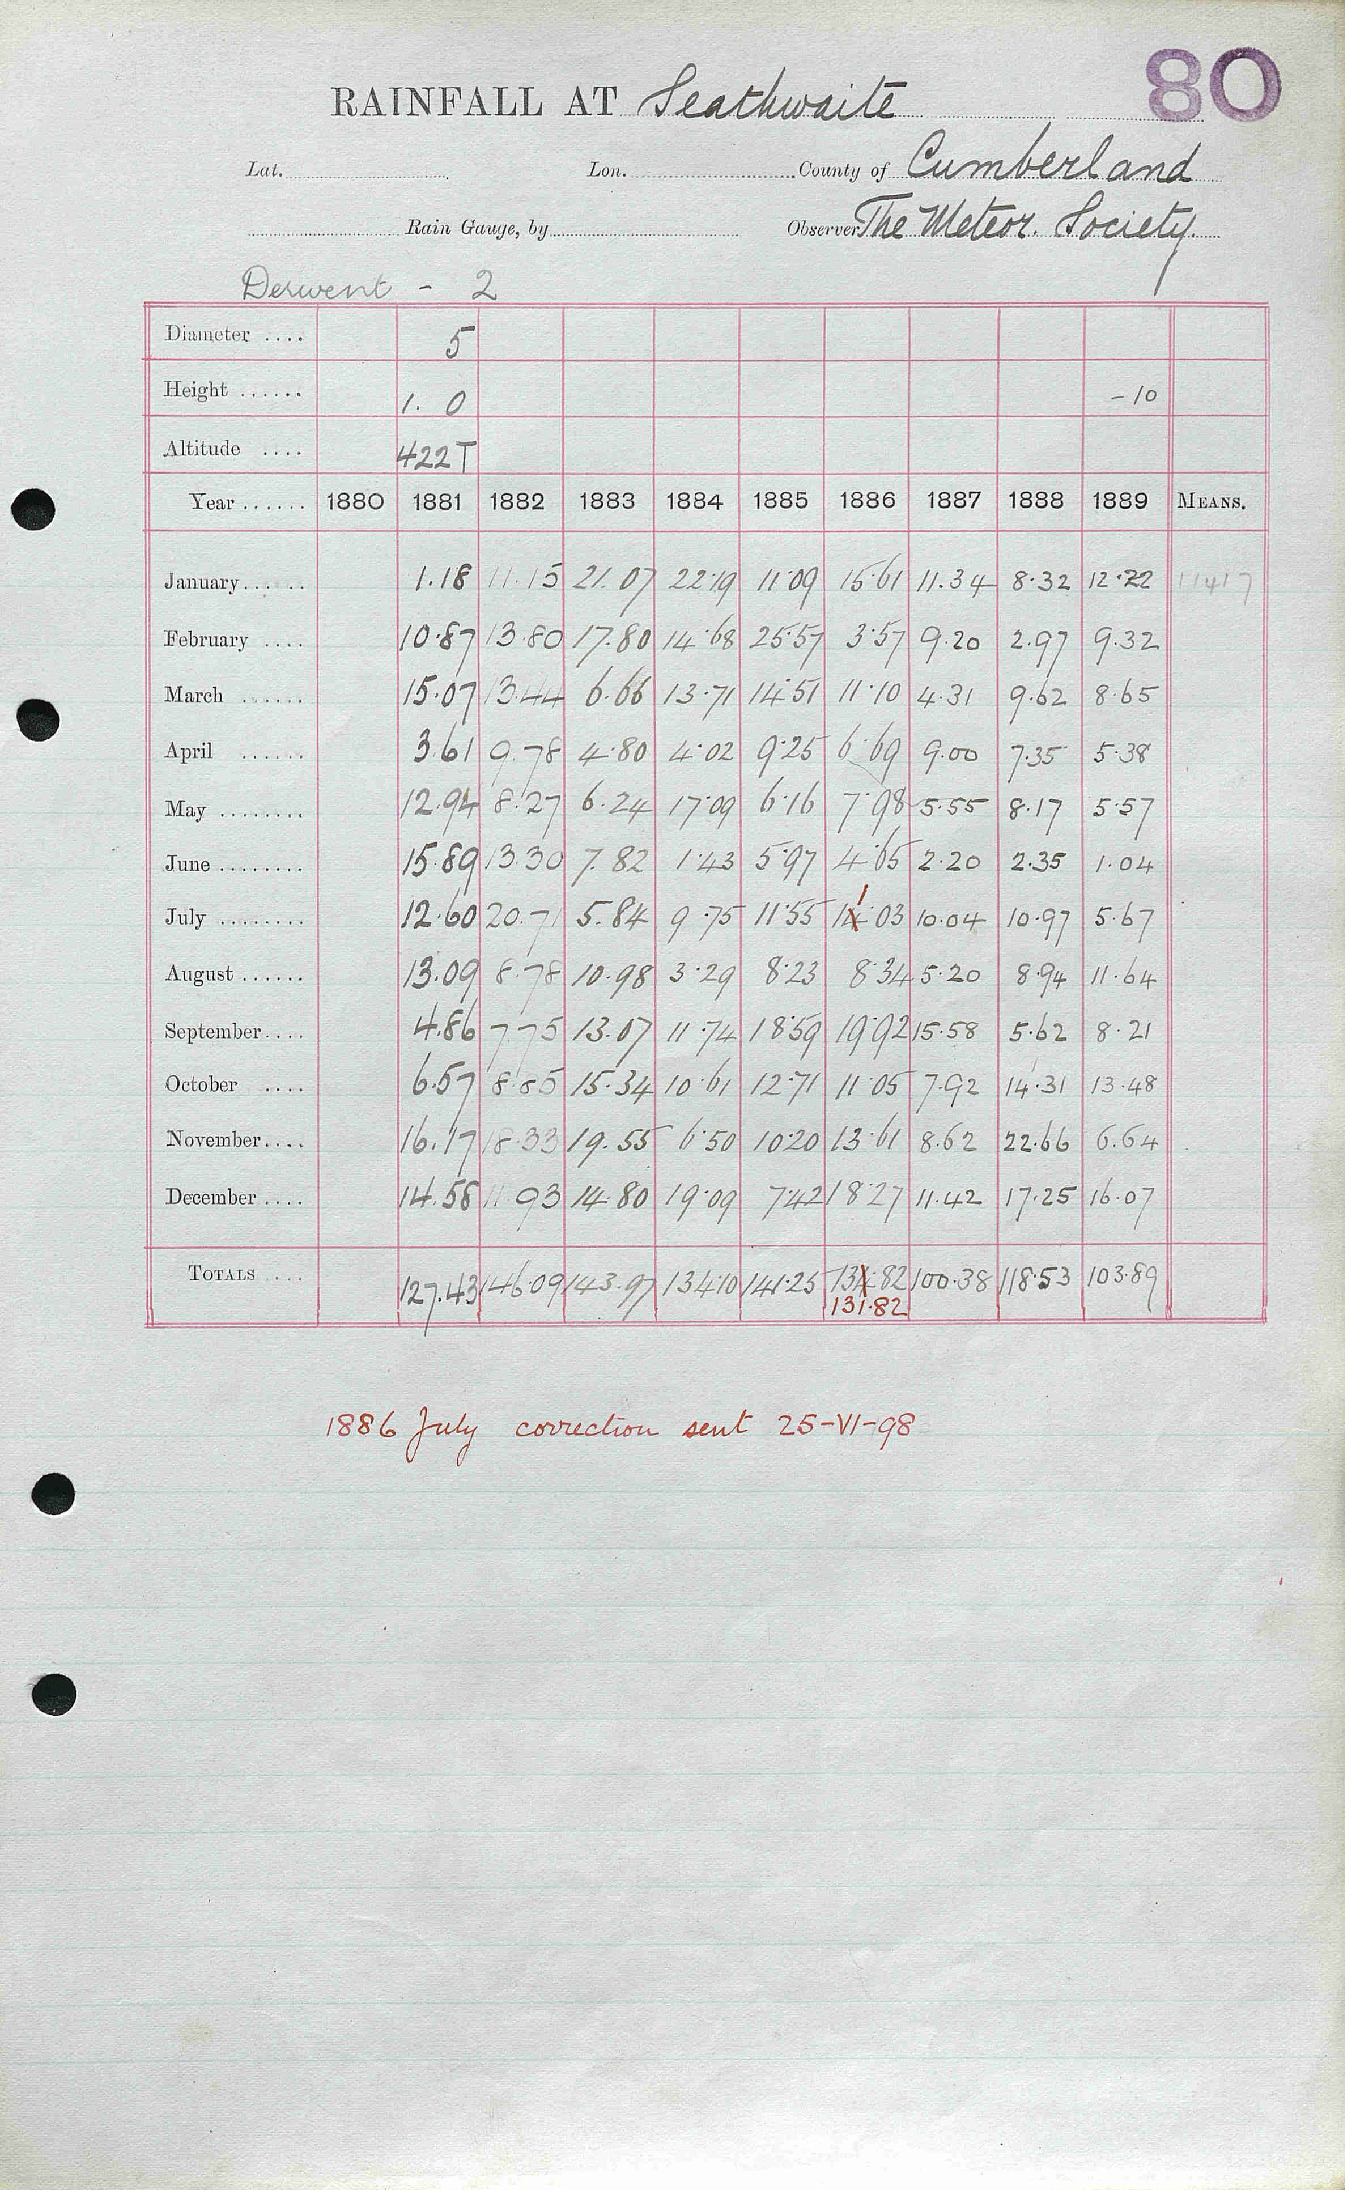 80
RAINFALL AT Seathwaite
Lat. Lon. County of Cumberland
Rain Gauge, by Observer The Meteor. Society.
Derwent - 2
Diameter .... 5
Height ...... 1. 0 -10
Altitude .... 422T
Year ...... 1880 1881 1882 1883 1884 1885 1886 1887 1888 1889 MEANS.
January...... 1.18 11.15 21.07 22.19 11.09 15.61 11.34 8.32 12.22
February .... 10.87 13.80 17.80 14.68 25.57 3.57 9.20 2.97 9.32
March ...... 15.07 13.44 6.66 13.71 14.51 11.10 4.31 9.62 8.65
April ...... 3.61 9.78 4.80 4.02 9.25 6.69 9.00 7.35 5.38
May ........ 12.94 8.27 6.24 17.09 6.16 7.98 5.55 8.17 5.57
June ........ 15.89 13.30 7.82 1.43 5.97 4.65 2.20 2.35 1.04
July ........ 12.60 20.71 5.84 9.75 11.55 11.03 10.04 10.97 5.67
August ...... 13.09 8.78 10.98 3.29 8.23 8.34 5.20 8.94 11.64
September.... 4.86 7.75 13.07 11.74 18.59 19.92 15.58 5.62 8.21
October .... 6.57 8.85 15.34 10.61 12.71 11.05 7.92 14.31 13.48
November.... 16.17 18.33 19.55 6.50 10.20 13.61 8.62 22.66 6.64
December .... 14.58 11.93 14.80 19.09 7.42 18.27 11.42 17.25 16.07
TOTALS .... 127.43 146.09 143.97 134.10 141.25 134.82 100.38 118.53 103.89
131.82
1886 July correction sent 25-VI-98